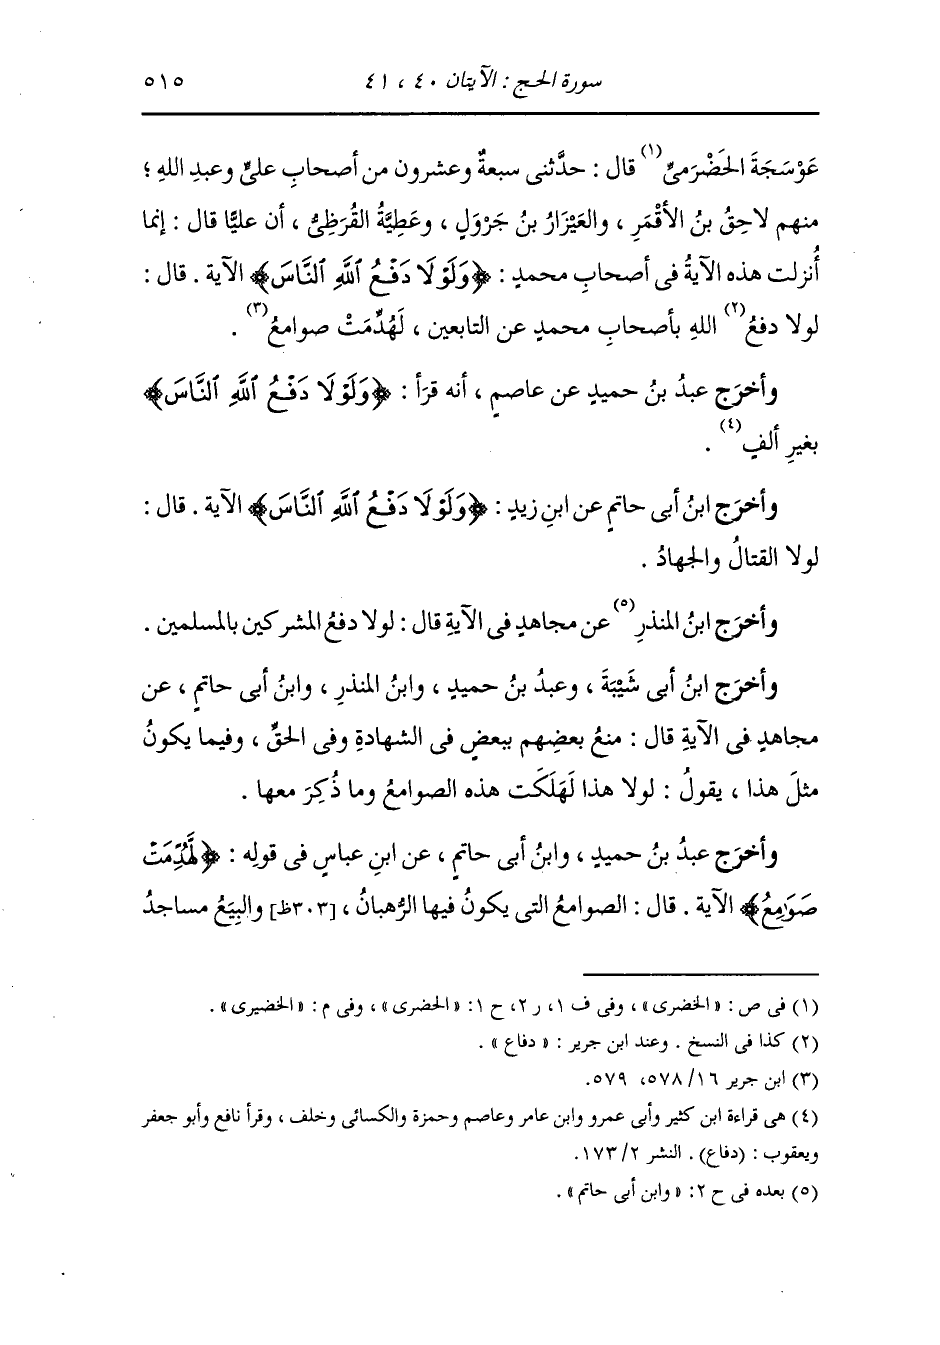 سورة الحج : الآيتان ٤٠ ، ٤١ ٥١٥
عَوْسَجَةَ الحَضْرَمىِّ(١) قال : حدَّثنى سبعةٌ وعشرون من أصحابِ علىٍّ وعبدِ اللهِ ؛
منهم لاحِقُ بنُ الأقْمَرِ ، والعَيْزَارُ بنُ جَرْوَلٍ ، وعَطِيَّةُ القُرَظِىُّ ، أن عليًّا قال : إنما
أُنزلت هذه الآيةُ فى أصحابِ محمدٍ : ﴿وَلَوْلَا دَفْعُ ٱللَّهِ ٱلنَّاسَ﴾ الآية . قال :
لولا دفعُ(٢) اللهِ بأصحابِ محمدٍ عن التابعين ، لَهُدِّمَتْ صوامعُ(٣) .
وأخرَج عبدُ بنُ حميدٍ عن عاصمٍ ، أنه قرَأ : ﴿وَلَوْلَا دَفْعُ ٱللَّهِ ٱلنَّاسَ﴾
بغيرِ ألفٍ(٤) .
وأخرَج ابنُ أبى حاتمٍ عن ابنِ زيدٍ : ﴿وَلَوْلَا دَفْعُ ٱللَّهِ ٱلنَّاسَ﴾ الآية . قال :
لولا القتالُ والجهادُ .
وأخرَج ابنُ المنذرِ(٥) عن مجاهدٍ فى الآيةِ قال : لولا دفعُ المشركين بالمسلمين .
وأخرَج ابنُ أبى شَيْبَةَ ، وعبدُ بنُ حميدٍ ، وابنُ المنذرِ ، وابنُ أبى حاتمٍ ، عن
مجاهدٍ فى الآيةِ قال : منعُ بعضِهم ببعضٍ فى الشهادةِ وفى الحقِّ ، وفيما يكونُ
مثلَ هذا ، يقولُ : لولا هذا لَهَلَكَت هذه الصوامعُ وما ذُكِرَ معها .
وأخرَج عبدُ بنُ حميدٍ ، وابنُ أبى حاتمٍ ، عن ابنِ عباسٍ فى قولِه : ﴿لَّهُدِّمَتْ
صَوَٰمِعُ﴾ الآية . قال : الصوامعُ التى يكونُ فيها الرُّهبانُ ، [٣٠٣ظ] والبِيَعُ مساجدُ
(١) فى ص : «الخضرى» ، وفى ف ١، ر ٢، ح ١: «الحضرى» ، وفى م : «الخضيرى» .
(٢) كذا فى النسخ . وعند ابن جرير : « دفاع » .
(٣) ابن جرير ١٦/ ٥٧٨، ٥٧٩.
(٤) هى قراءة ابن كثير وأبى عمرو وابن عامر وعاصم وحمزة والكسائى وخلف ، وقرأ نافع وأبو جعفر
ويعقوب : (دفاع) . النشر ٢/ ١٧٣.
(٥) بعده فى ح ٢: « وابن أبى حاتم» .